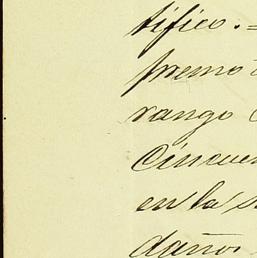 tifico. =
premo
rango
Cincuen
en la s
daños